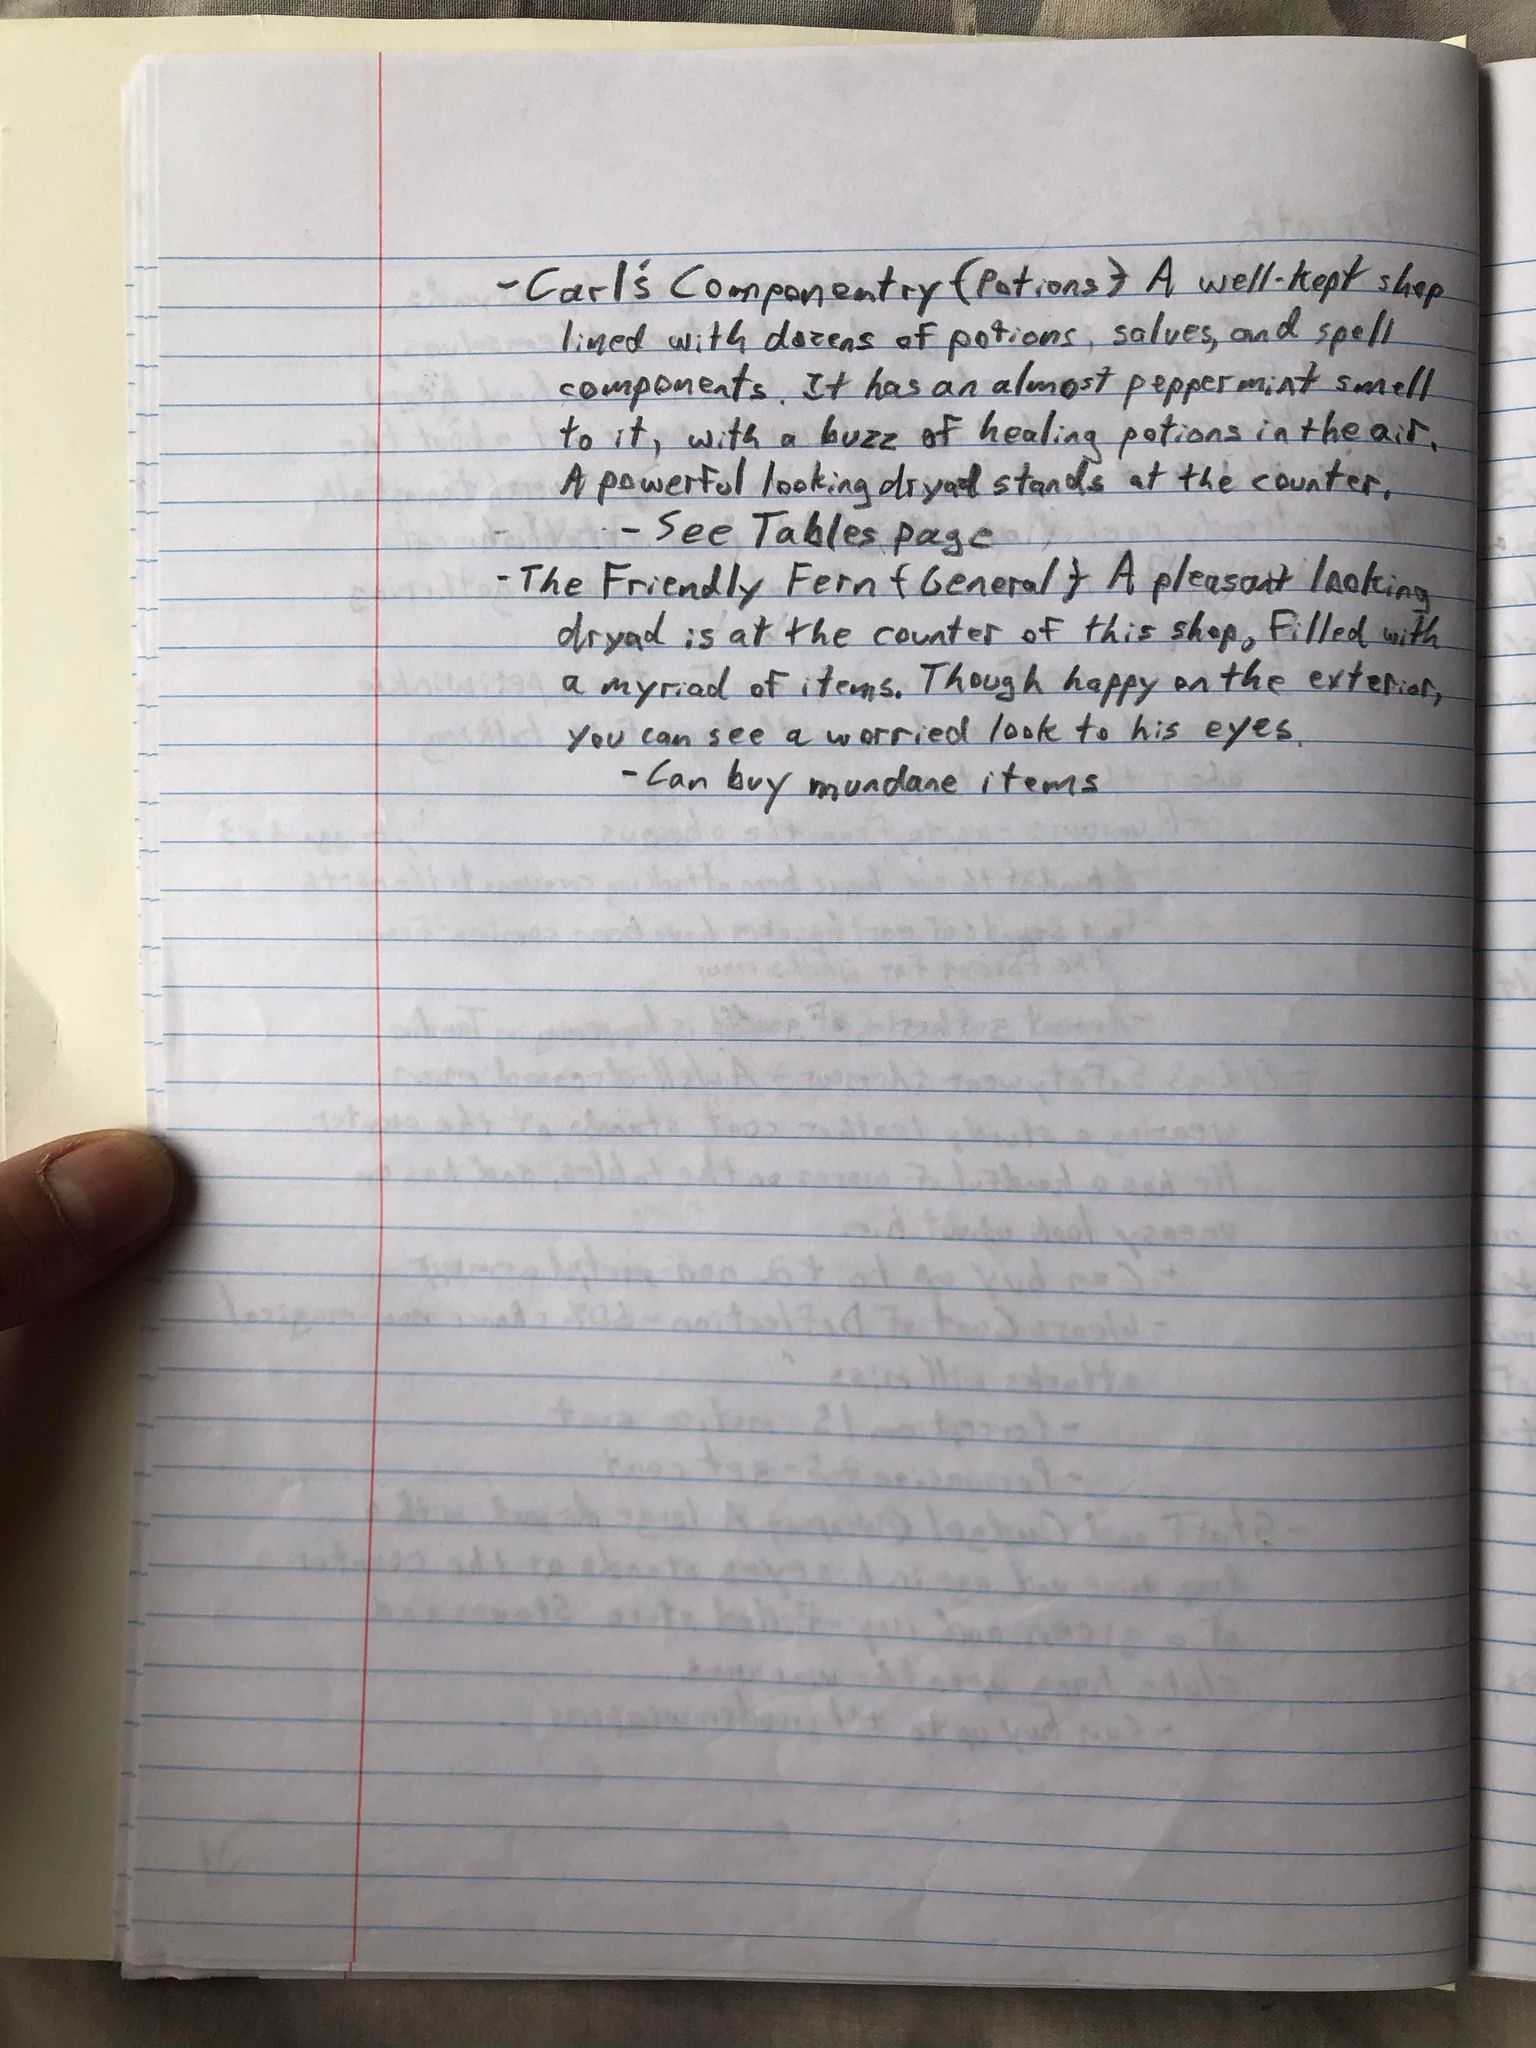 - Carl's Componentry {Potions} A well-kept shop
lined with dozens of potions, salves, and spell
components. It has an almost peppermint smell
to it, with a buzz of healing potions in the air.
A powerful looking dryad stands at the counter.
- See Tables page
- The Friendly Fern {General} A pleasant looking
dryad is at the counter of this shop, filled with
a myriad of items. Though happy on the exterior,
you can see a worried look to his eyes.
- Can buy mundane items